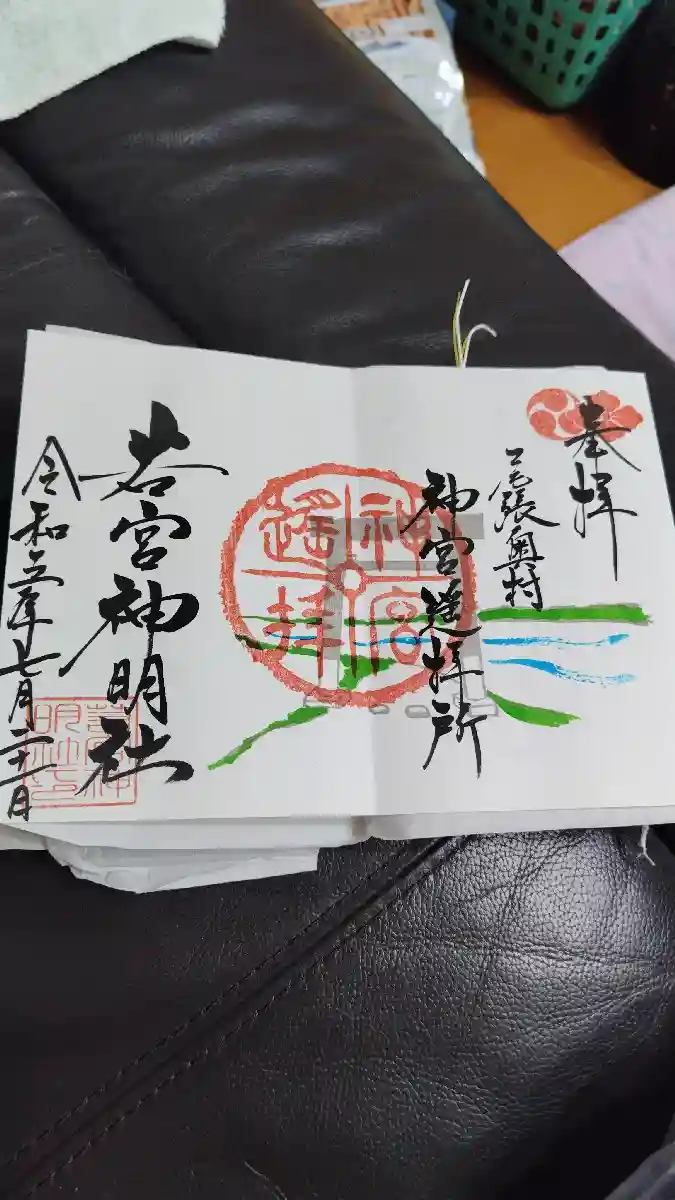 奉拝
尾張奥村
神宮遥拝所
神宮
遥拝
若宮神明社
令和五年七月二十一日